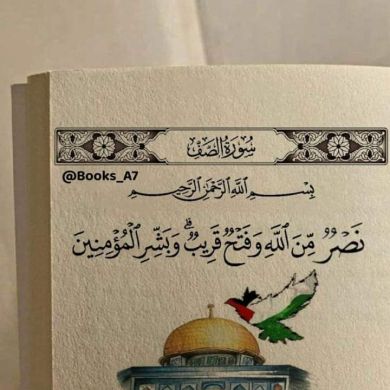 سُورَةُ الصَّفِّ
@Books_A7
بِسْمِ اللَّهِ الرَّحْمَٰنِ الرَّحِيمِ
نَصْرٌ مِّنَ اللَّهِ وَفَتْحٌ قَرِيبٌ ۗ وَبَشِّرِ الْمُؤْمِنِينَ